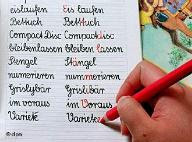 eislaufen Eis laufen
Bettuch Betttuch
Compact Disc Compactdisc
bleibenlassen bleiben lassen
Stengel Stängel
numerieren nummerieren
Grislybär Grislibär
im voraus im Voraus
Varieté Varietee